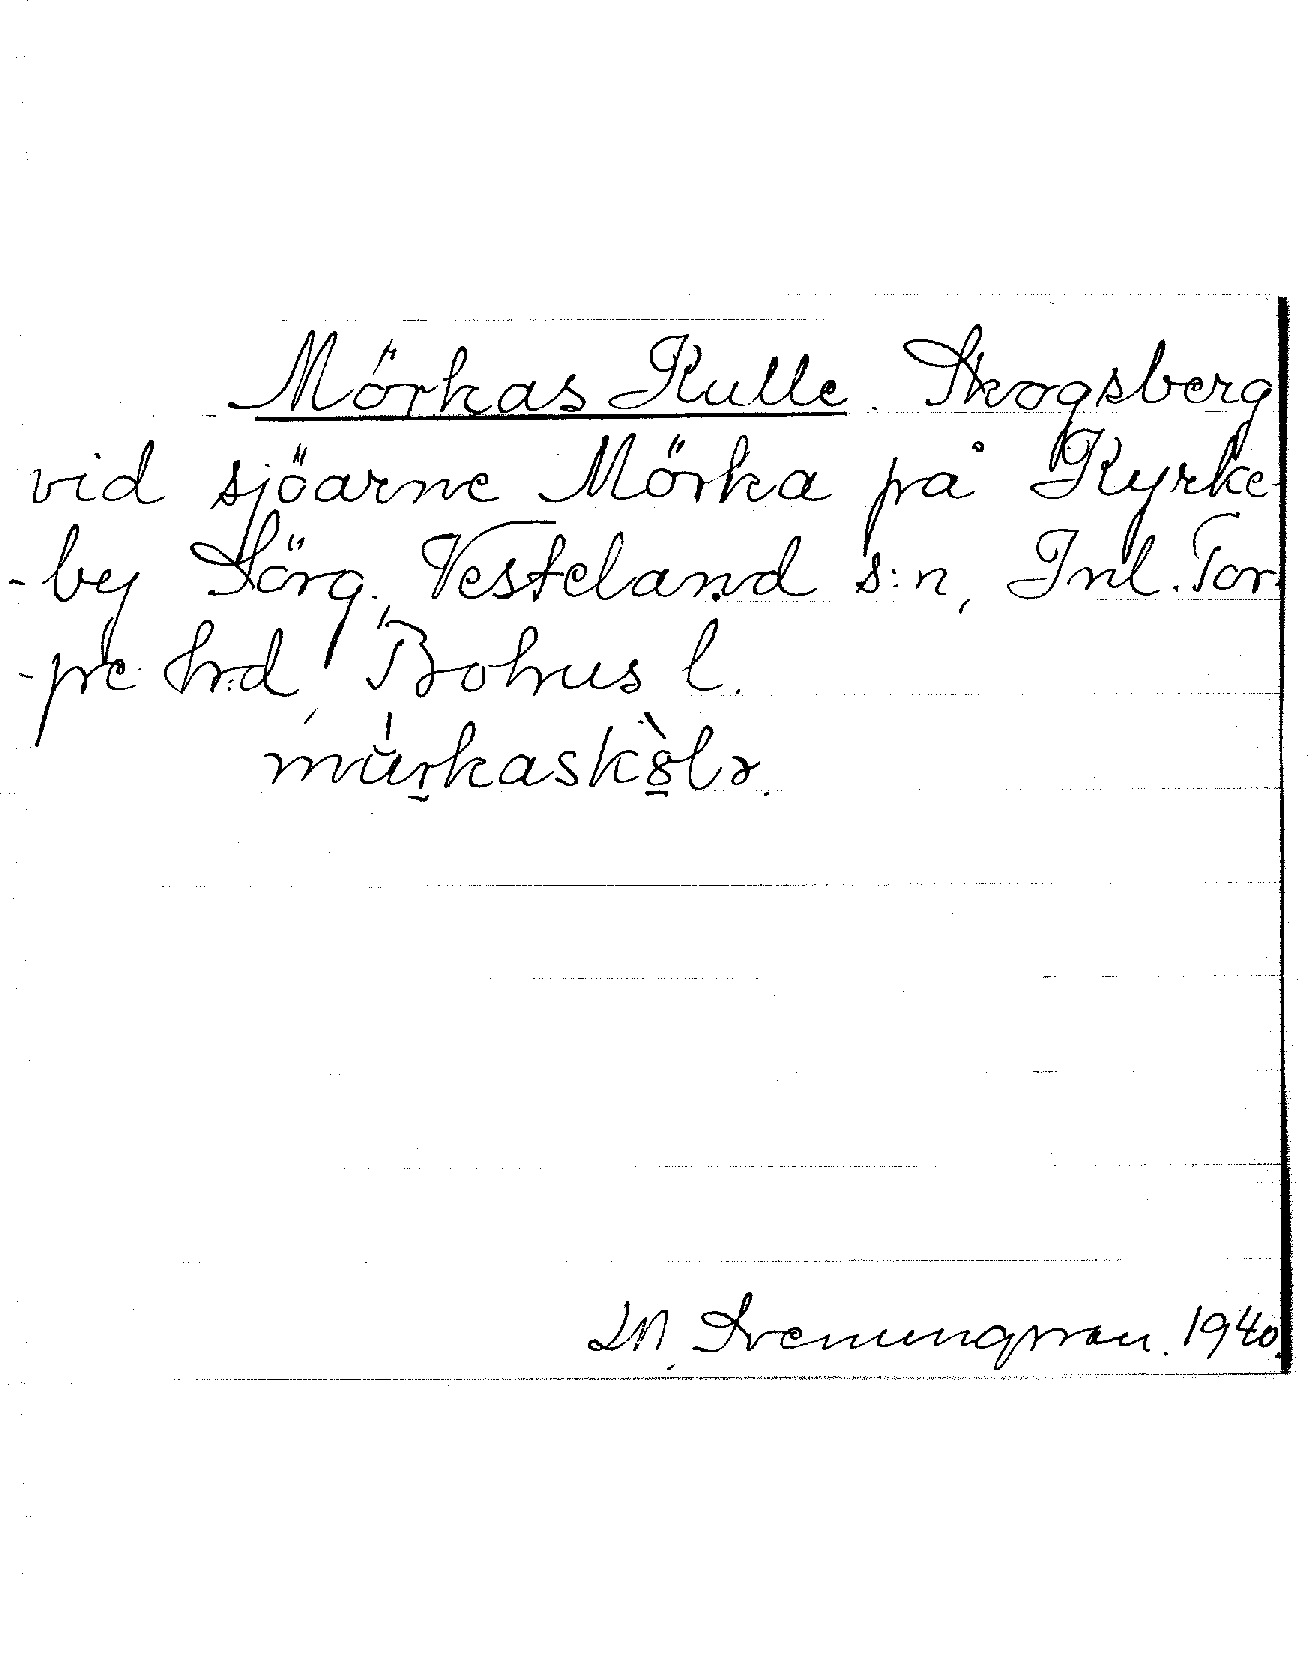 Mörkas Kulle. Skogsberg
vid sjöarne Mörka på Kyrke-
-by Sörg., Vesteland s:n, Inl. Tor-
-pe hrd, Bohus l.
mu̇ṟkaskò̱lə.
M. 1940.